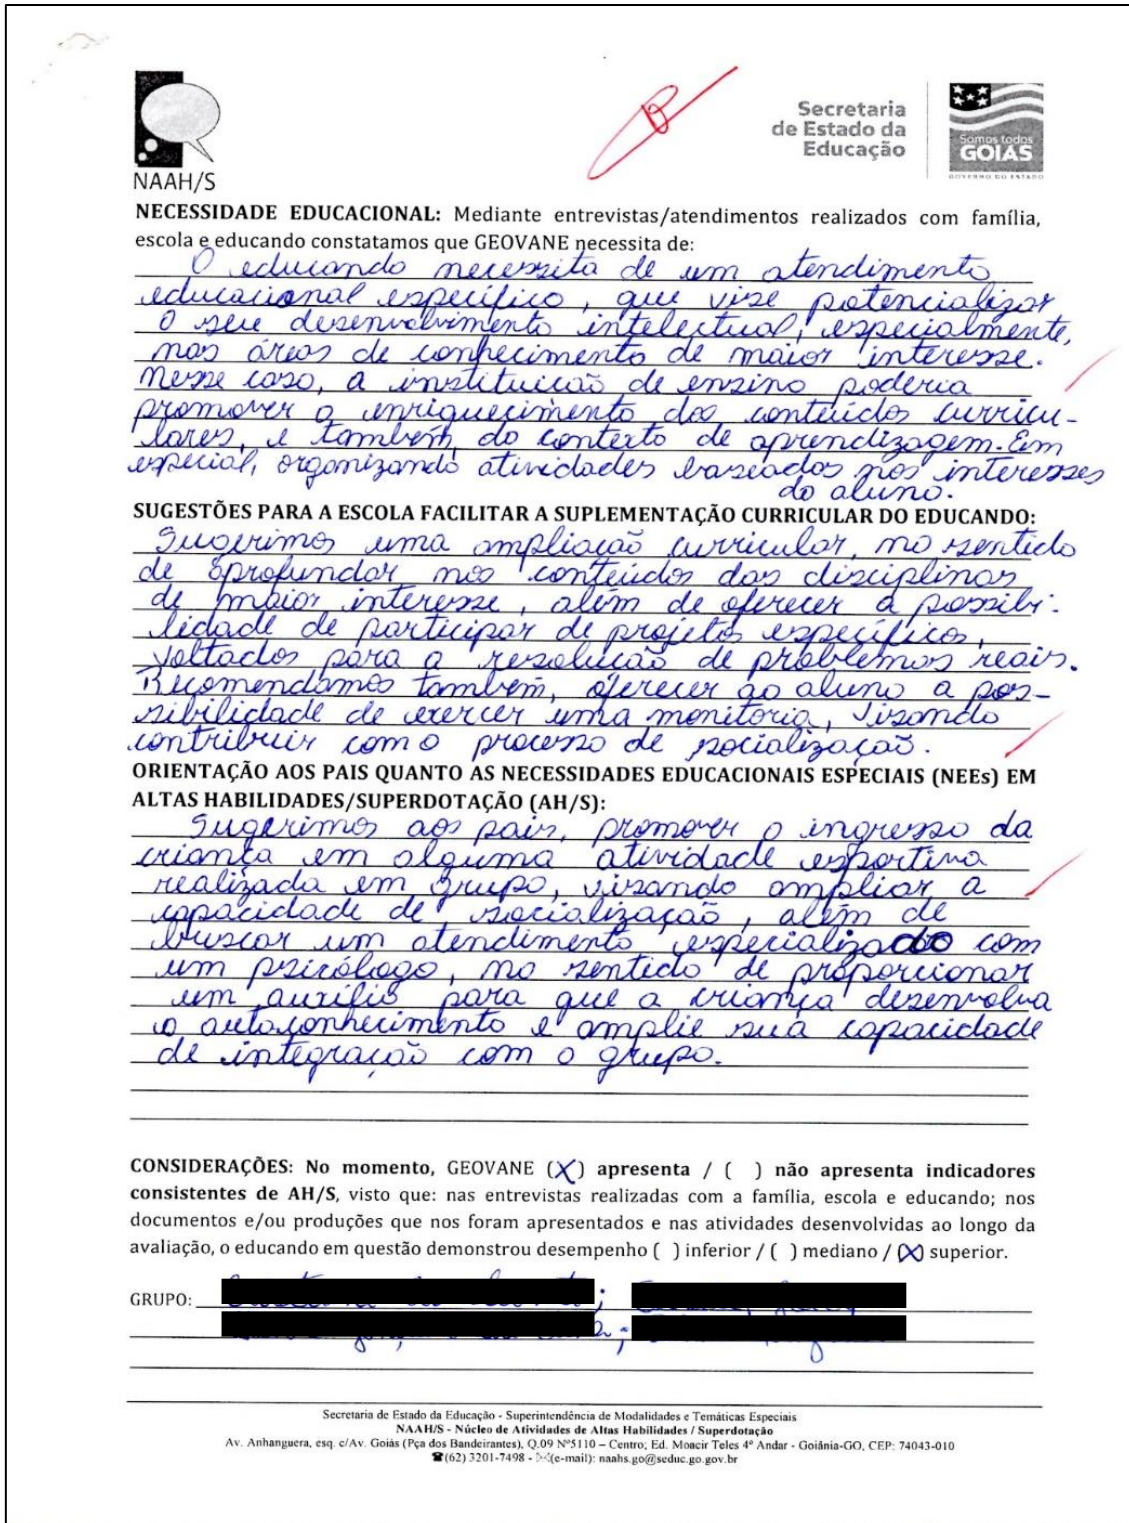 NAAH/S
Secretaria
de Estado da
Educação
Somos todos
GOIÁS
GOVERNO DO ESTADO
NECESSIDADE EDUCACIONAL: Mediante entrevistas/atendimentos realizados com família,
escola e educando constatamos que GEOVANE necessita de:
O educando necessita de um atendimento
educacional específico, que vise potencializar
o seu desenvolvimento intelectual, especialmente,
nas áreas de conhecimento de maior interesse.
Nesse caso, a instituição de ensino poderia
promover o enriquecimento dos conteúdos curricu-
lares, e também, do contexto de aprendizagem. Em
especial, organizando atividades baseadas nos interesses
do aluno.
SUGESTÕES PARA A ESCOLA FACILITAR A SUPLEMENTAÇÃO CURRICULAR DO EDUCANDO:
Sugerimos uma ampliação curricular, no sentido
de aprofundar nos conteúdos das disciplinas
de maior interesse, além de oferecer a possibi-
lidade de participar de projetos específicos,
voltados para a resolução de problemas reais.
Recomendamos também, oferecer ao aluno a pos-
sibilidade de exercer uma monitoria, visando
contribuir com o processo de socialização.
ORIENTAÇÃO AOS PAIS QUANTO AS NECESSIDADES EDUCACIONAIS ESPECIAIS (NEEs) EM
ALTAS HABILIDADES/SUPERDOTAÇÃO (AH/S):
Sugerimos aos pais, promover o ingresso da
criança em alguma atividade esportiva
realizada em grupo, visando ampliar a
capacidade de socialização, além de
buscar um atendimento especializado com
um psicólogo, no sentido de proporcionar
um auxílio para que a criança desenvolva
o autoconhecimento e amplie sua capacidade
de integração com o grupo.
CONSIDERAÇÕES: No momento, GEOVANE (X) apresenta / ( ) não apresenta indicadores
consistentes de AH/S, visto que: nas entrevistas realizadas com a família, escola e educando; nos
documentos e/ou produções que nos foram apresentados e nas atividades desenvolvidas ao longo da
avaliação, o educando em questão demonstrou desempenho ( ) inferior / ( ) mediano / (X) superior.
GRUPO:
Secretaria de Estado da Educação - Superintendência de Modalidades e Temáticas Especiais
NAAH/S - Núcleo de Atividades de Altas Habilidades / Superdotação
Av. Anhanguera, esq. c/Av. Goiás (Pça dos Bandeirantes), Q.09 Nº5110 – Centro; Ed. Moacir Teles 4º Andar - Goiânia-GO, CEP: 74043-010
☎(62) 3201-7498 - ✉(e-mail): naahs.go@seduc.go.gov.br